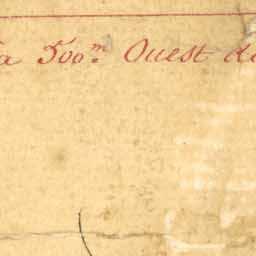 a 500.m Ouest de